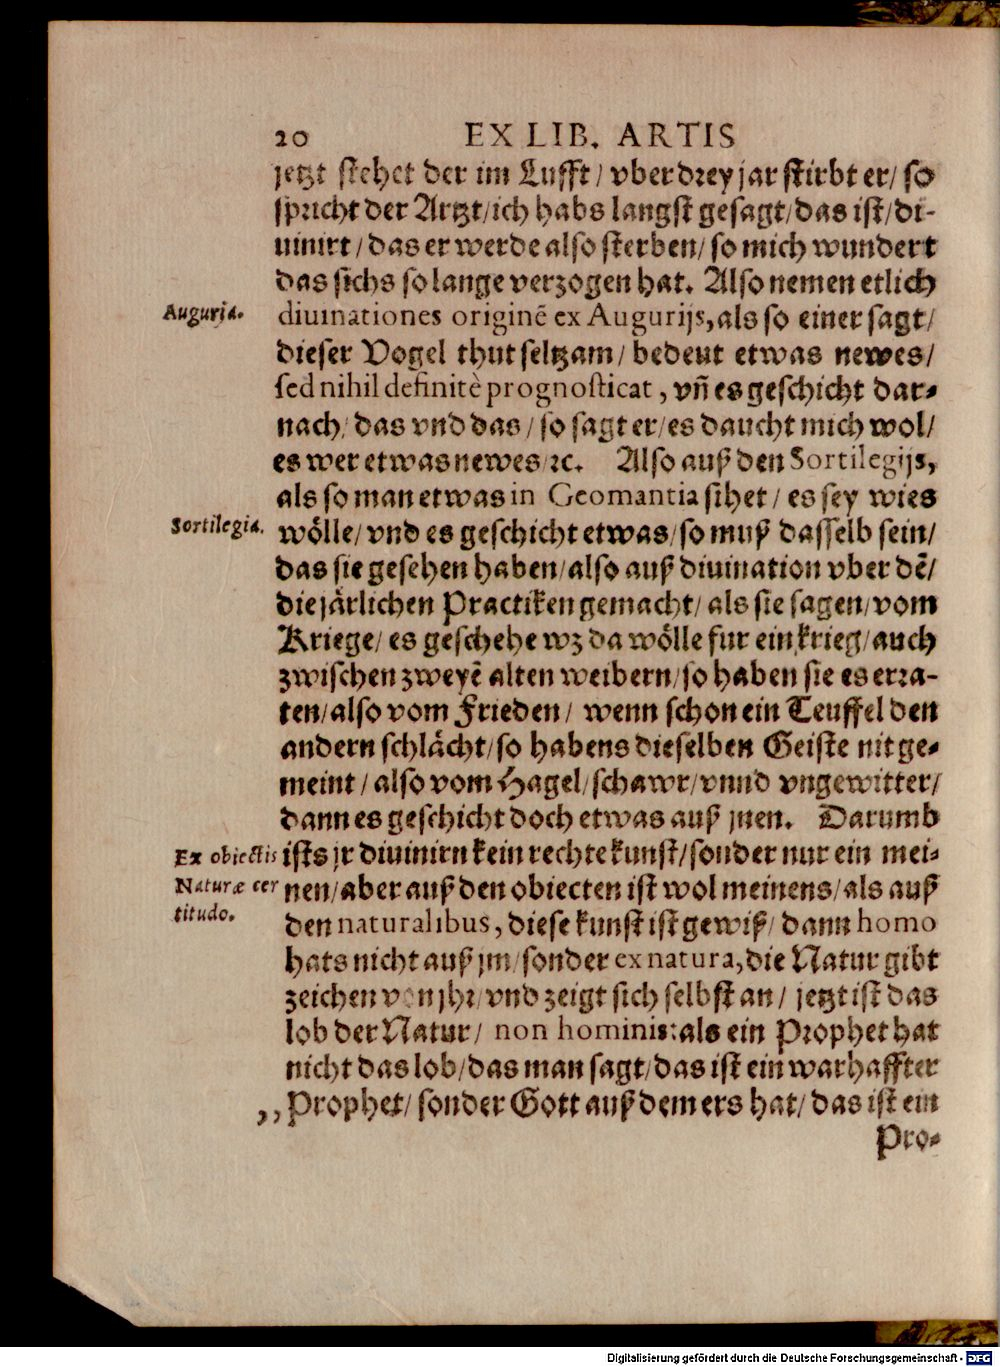 20 EX LIB. ARTIS
jetzt stehet der im Lufft / vber drey jar stirbt er / so
spricht der Artzt / ich habs langst gesagt / das ist / di-
uinirt / das er werde also sterben / so mich wundert
das sichs so lange verzogen hat. Also nemen etlich
Auguria.
diuinationes originẽ ex Augurijs, als so einer sagt /
dieser Vogel thut seltzam / bedeut etwas newes /
sed nihil definitè prognosticat, vñ es geschicht dar-
nach / das vnd das / so sagt er / es daucht mich wol /
es wer etwas newes / ꝛc. Also auß den Sortilegijs,
als so man etwas in Geomantia sihet / es sey wies
Sortilegia.
wölle / vnd es geschicht etwas / so muß dasselb sein /
das sie gesehen haben / also auß diuination vber dẽ /
die järlichen Practiken gemacht / als sie sagen / vom
Kriege / es geschehe wz da wölle fur ein krieg / auch
zwischen zweyẽ alten weibern / so haben sie es erra-
ten / also vom Frieden / wenn schon ein Teuffel den
andern schlächt / so habens dieselben Geiste nit ge-
meint / also vom Hagel / schawr / vnnd vngewitter /
dann es geschicht doch etwas auß jnen. Darumb
Ex obiectis
Naturæ cer
titudo.
ists jr diuinirn kein rechte kunst / sonder nur ein mei-
nen / aber auß den obiecten ist wol meinens / als auß
den naturalibus, diese kunst ist gewiß / dann homo
hats nicht auß jm / sonder ex natura, die Natur gibt
zeichen von jhr / vnd zeigt sich selbst an / jetzt ist das
lob der Natur / non hominis: als ein Prophet hat
nicht das lob / das man sagt / das ist ein warhaffter
,, Prophet / sonder Gott auß dem ers hat / das ist ein
Pro-
Digitalisierung gefördert durch die Deutsche Forschungsgemeinschaft - DFG